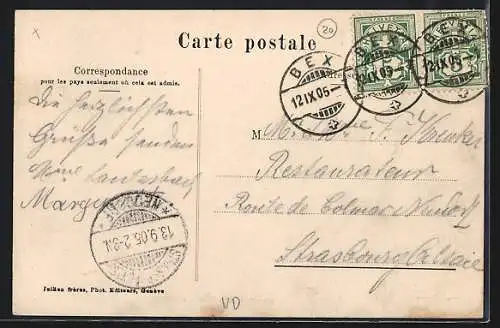 x
20
Carte postale
Correspondance
pour les pays seulement où cela est admis.
BEX
12.IX.05
BEX
12.IX.05
BEX
12.IX.05
HELVETIA
Die herzlichsten
Grüße senden
Mme Lautesbach
M
Restaurateur
Route de Colmar Neudorf
Strasbourg Alsace
13.9.05. 2-3.N.
Jullien frères, Phot. Editeurs, Genève
VD